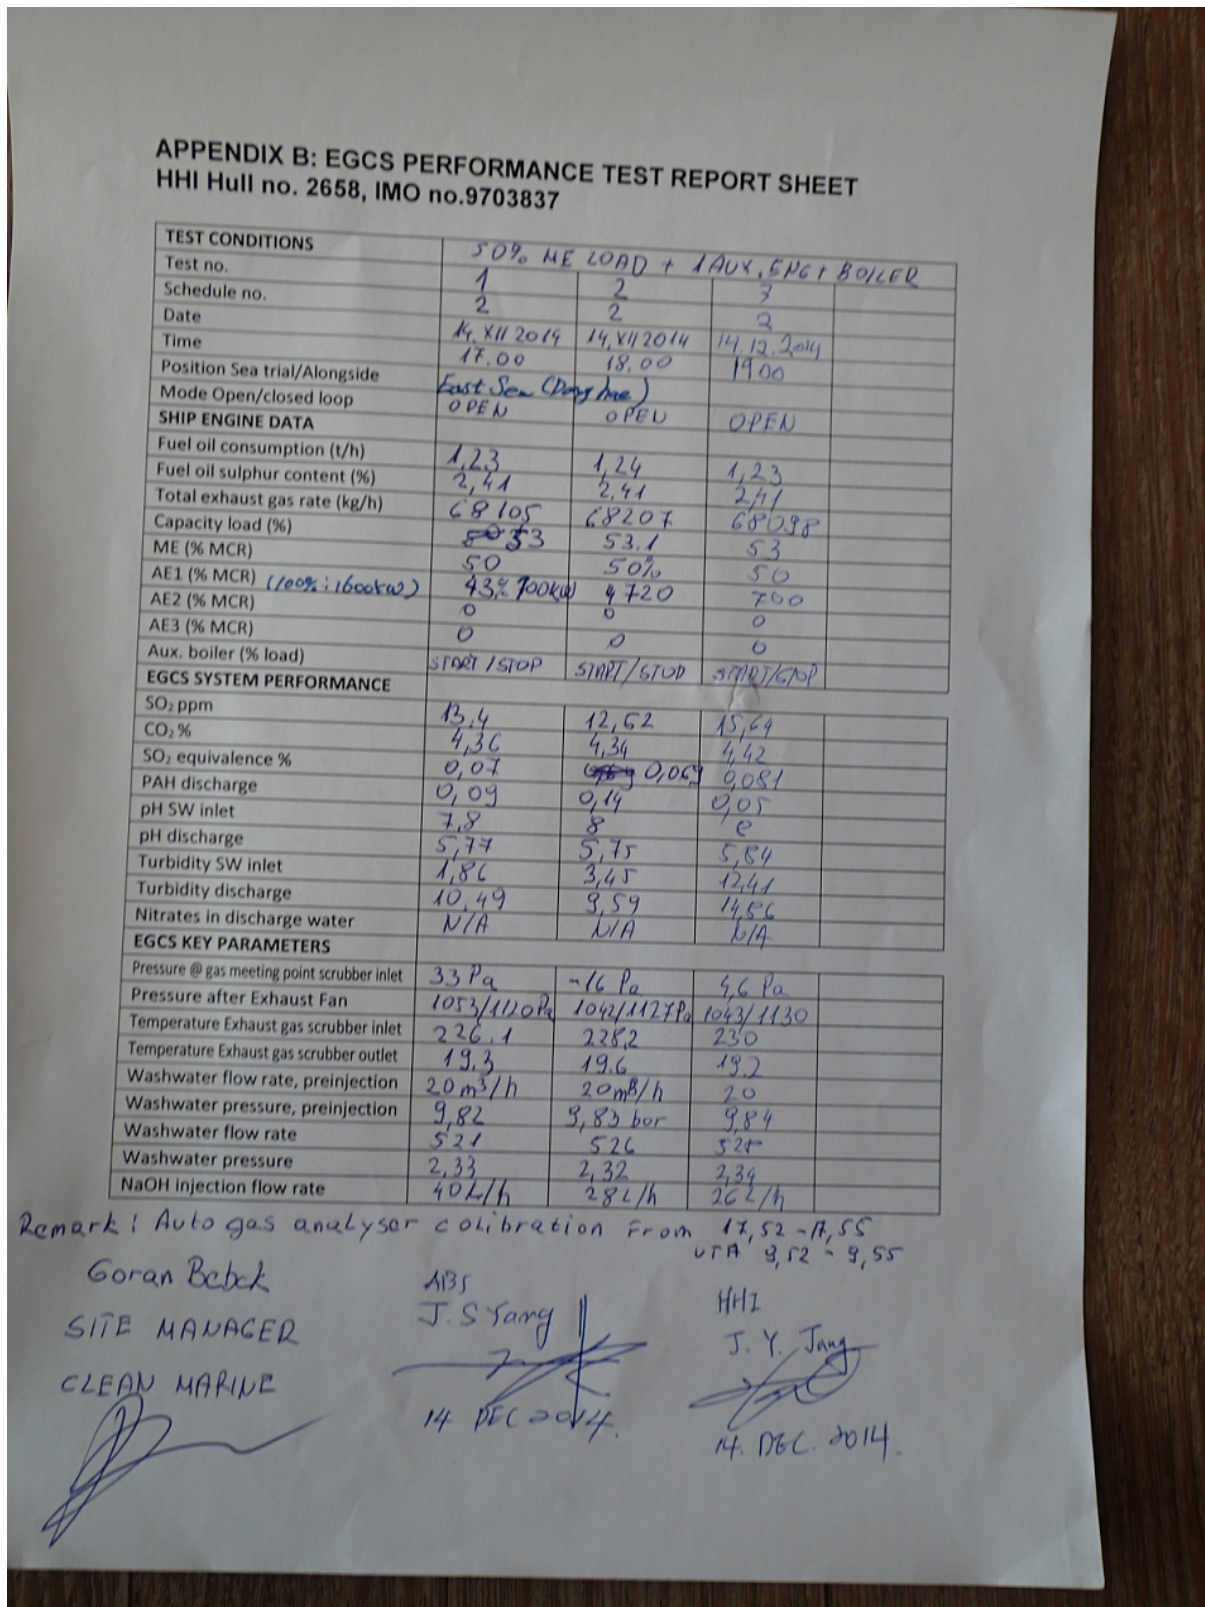 APPENDIX B: EGCS PERFORMANCE TEST REPORT SHEET
HHI Hull no. 2658, IMO no.9703837
TEST CONDITIONS 50% ME LOAD + 1 AUX. ENG + BOILER
Test no. 1 2 3
Schedule no. 2 2 2
Date 14. XII 2014 14, XII 2014 14.12.2014
Time 17.00 18.00 1900
Position Sea trial/Alongside East Sea (Donghae)
Mode Open/closed loop OPEN OPEN OPEN
SHIP ENGINE DATA
Fuel oil consumption (t/h) 1,23 1,24 1,23
Fuel oil sulphur content (%) 2,41 2,41 2,41
Total exhaust gas rate (kg/h) 68105 68207 68098
Capacity load (%) 53 53.1 53
ME (% MCR) 50 50% 50
AE1 (% MCR) (100%: 1600kw) 43% 700kw 720 700
AE2 (% MCR) 0 0 0
AE3 (% MCR) 0 0 0
Aux. boiler (% load) START/STOP START/STOP START/STOP
EGCS SYSTEM PERFORMANCE
SO₂ ppm 13,4 12,62 15,64
CO₂ % 4,36 4,34 4,42
SO₂ equivalence % 0,07 0,069 0,081
PAH discharge 0,09 0,14 0,05
pH SW inlet 7,8 8
pH discharge 5,77 5,75 5,84
Turbidity SW inlet 1,86 3,45 12,41
Turbidity discharge 10,49 9,59 14,56
Nitrates in discharge water N/A N/A N/A
EGCS KEY PARAMETERS
Pressure @ gas meeting point scrubber inlet 33 Pa -16 Pa 4,6 Pa
Pressure after Exhaust Fan 1053/1120Pa 1042/1127Pa 1043/1130
Temperature Exhaust gas scrubber inlet 226.1 228,2 230
Temperature Exhaust gas scrubber outlet 19.3 19.6 19.2
Washwater flow rate, preinjection 20 m³/h 20 m³/h 20
Washwater pressure, preinjection 9,82 9,83 bar 9,84
Washwater flow rate 521 526
Washwater pressure 2,33 2,32 2,34
NaOH injection flow rate 40 L/h 28 L/h 26 L/h
Remark! Auto gas analyser calibration From 17,52 - 17,55
UTA 9,52 - 9,55
Goran Bebek ABS HHI
SITE MANAGER J.S Yang J. Y. Jang
CLEAN MARINE
14 DEC 2014. 14. DEC. 2014.